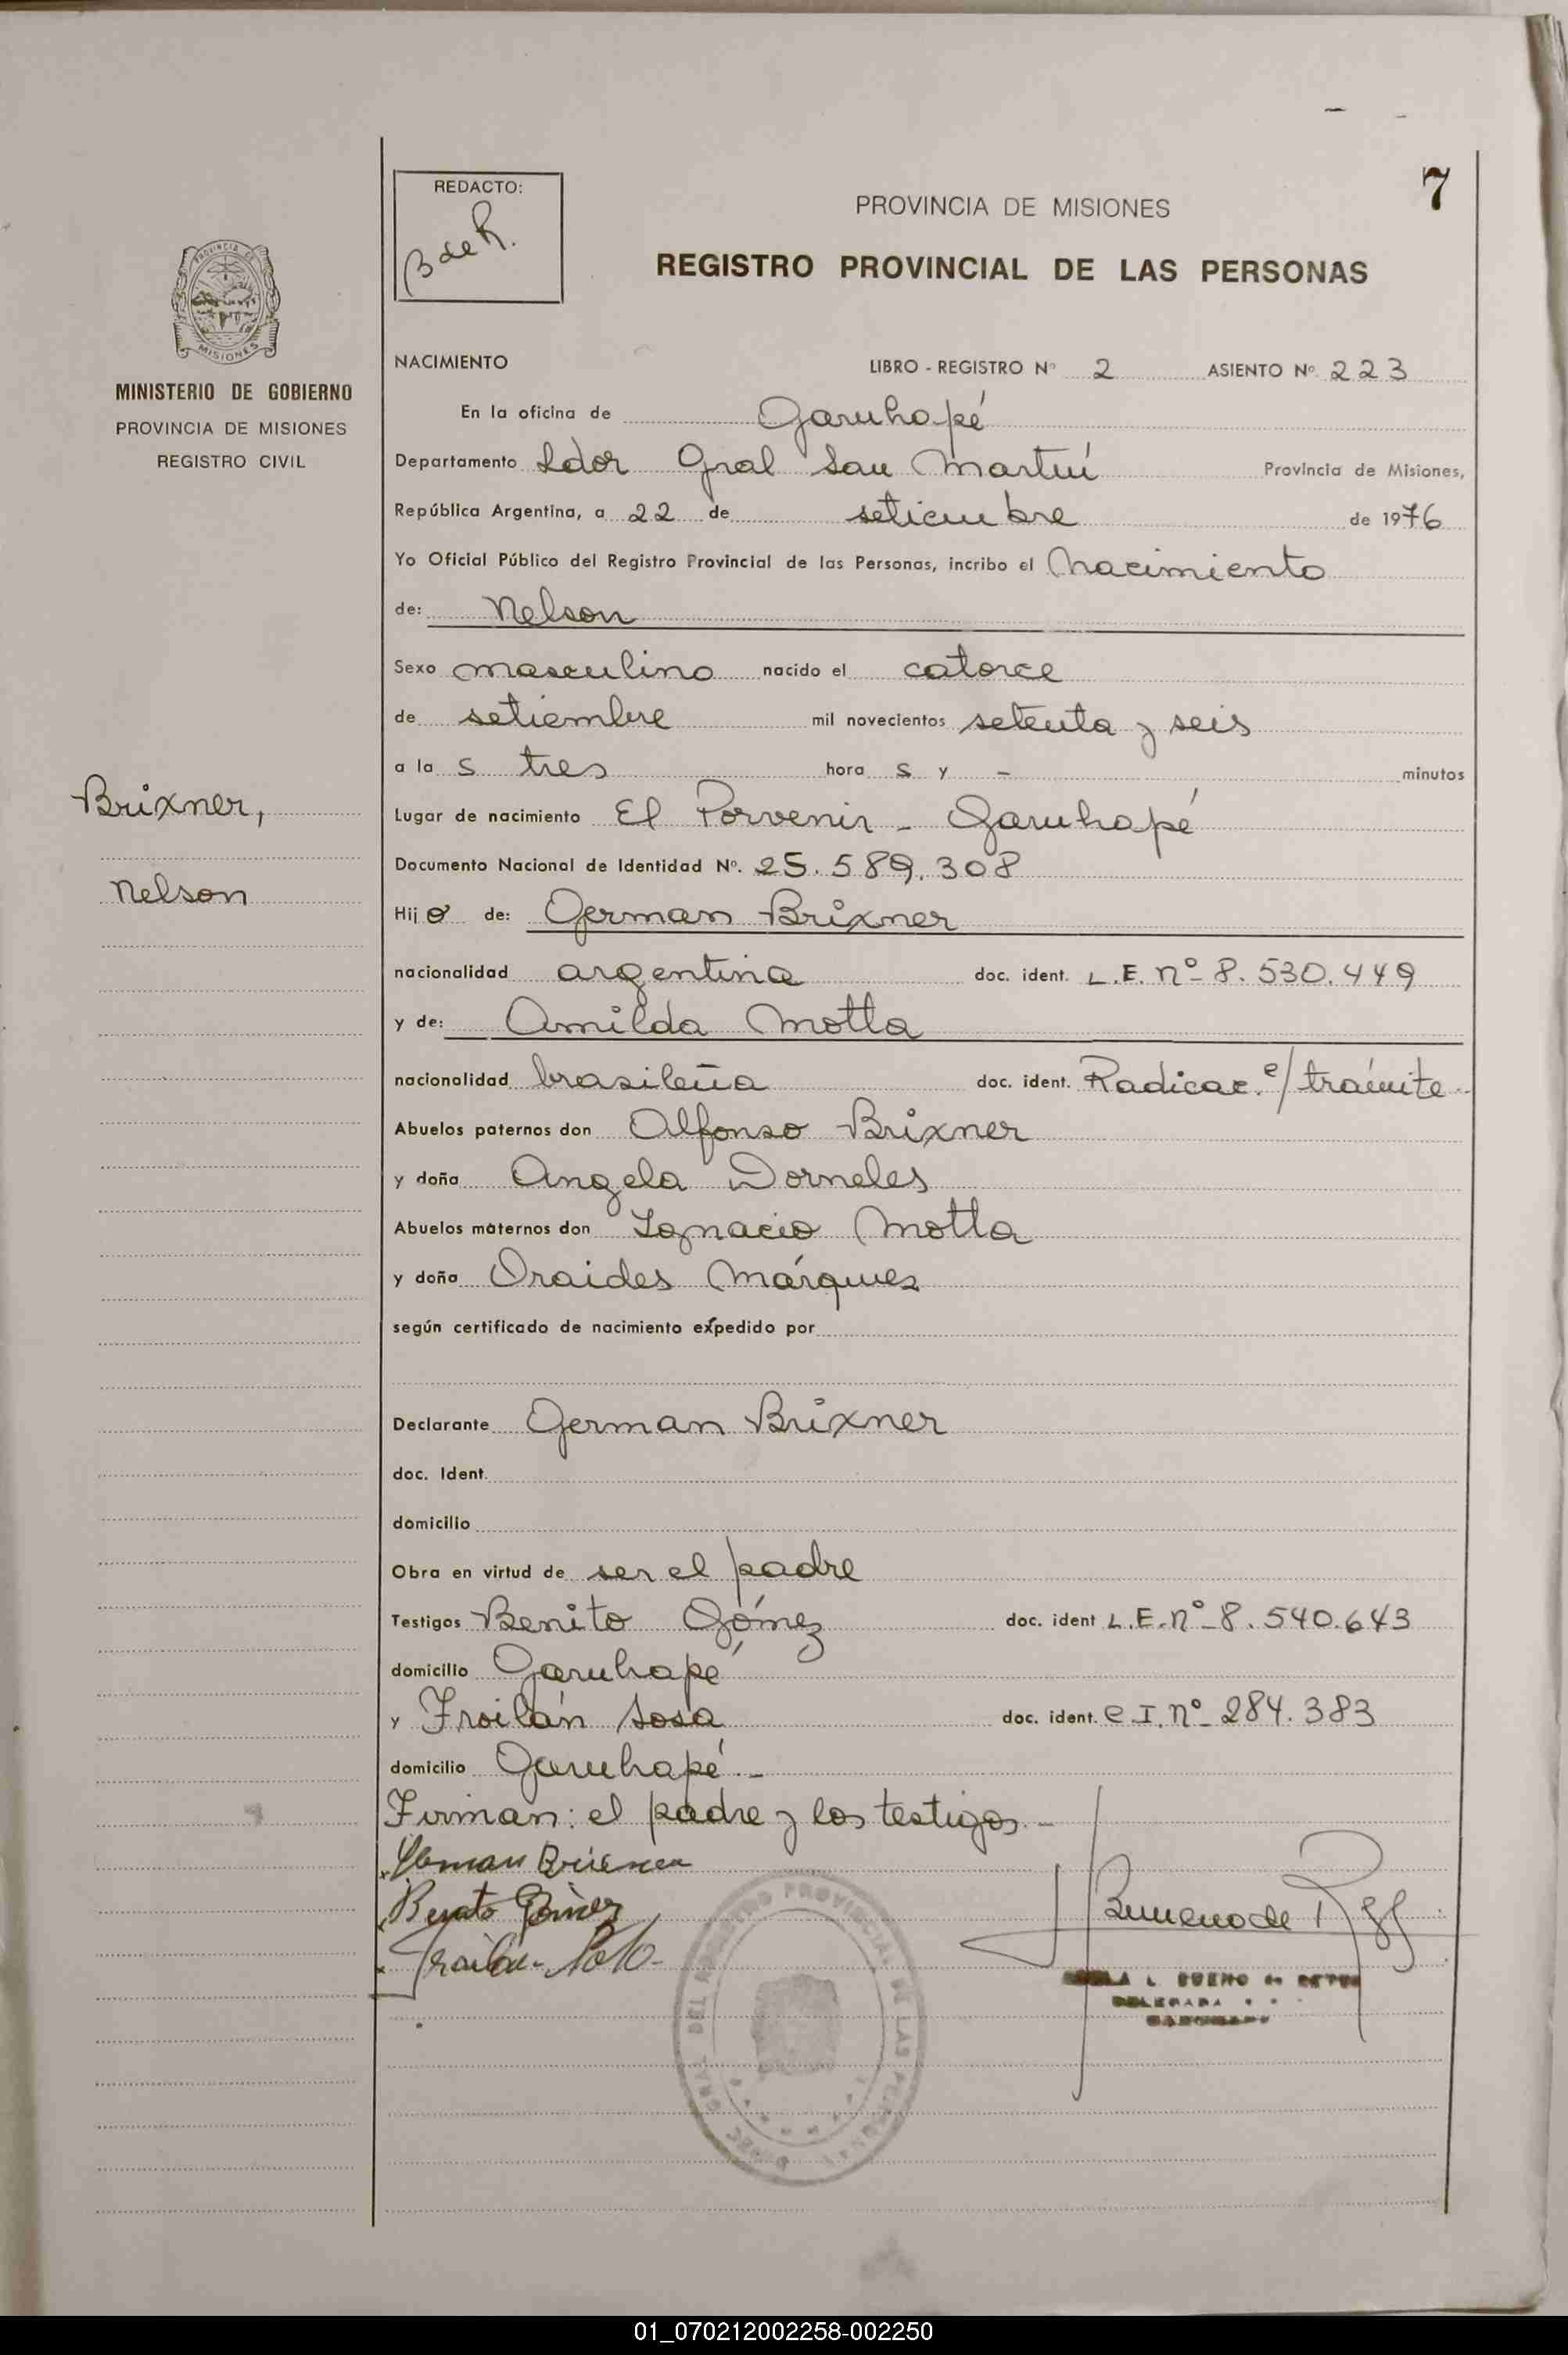 7
REDACTO:
B de R.
PROVINCIA DE MISIONES
REGISTRO PROVINCIAL DE LAS PERSONAS
PROVINCIA DE
MISIONES
MINISTERIO DE GOBIERNO
PROVINCIA DE MISIONES
REGISTRO CIVIL
Brixner,
Nelson
NACIMIENTO LIBRO - REGISTRO Nº 2 ASIENTO Nº 223
En la oficina de Garuhapé
Departamento Ldor Gral San Martín Provincia de Misiones,
República Argentina, a 22 de setiembre de 1976
Yo Oficial Público del Registro Provincial de las Personas, incribo el Nacimiento
de: Nelson
Sexo masculino nacido el catorce
de setiembre mil novecientos setenta y seis
a la s tres hora s y - minutos
Lugar de nacimiento El Porvenir - Garuhapé
Documento Nacional de Identidad Nº. 25.589.308
Hij o de: German Brixner
nacionalidad argentina doc. ident. L.E. Nº 8.530.449
y de: Amilda Motta
nacionalidad brasileña doc. ident. Radicac. e/ trámite
Abuelos paternos don Alfonso Brixner
y doña Angela Dorneles
Abuelos maternos don Ignacio Motta
y doña Oraides Márquez
según certificado de nacimiento expedido por
Declarante German Brixner
doc. Ident.
domicilio
Obra en virtud de ser el padre
Testigos Benito Gómez doc. ident L.E. Nº 8.540.643
domicilio Garuhapé
y Froilán Sosa doc. ident. C.I. Nº 284.383
domicilio Garuhapé.-
Firman: el padre y los testigos.-
DEL REGISTRO PROVINCIAL DE LAS PERSONAS
01_070212002258-002250